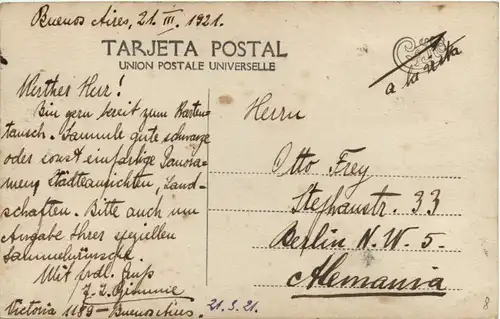 Buenos Aires, 21. III. 1921.
TARJETA POSTAL
UNION POSTALE UNIVERSELLE
a la vista
Werther Herr!
Bin gern bereit zum Karten-
tausch. Sammle gute schwarze
oder sonst einfarbige Panora-
men, Städteansichten, Land-
schaften. Bitte auch um
Angabe Ihrer speziellen
Sammelwünsche.
Mit frdl. Gruß
Victoria 1189 - Buenos Aires.
21.3.21.
Herrn
Otto Frey
Stephanstr. 33
Berlin N.W. 5.
Alemania